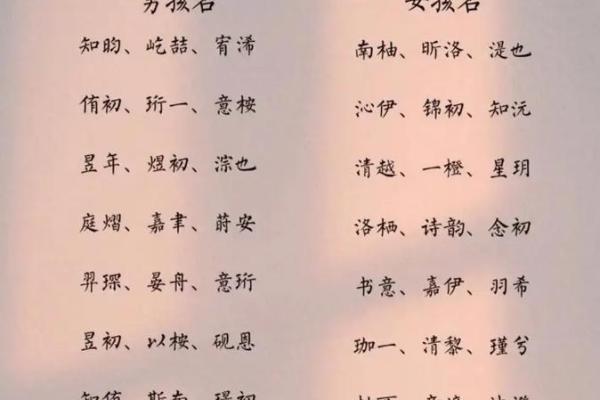 男孩名
女孩名
知昀、屹喆、宥浠
侑初、珩一、意桉
昱年、煜初、淙也
庭熠、嘉聿、莳安
羿琛、晏舟、意珩
昱初、以桉、砚恩
南柚、昕洛、湜也
沁伊、锦初、知沅
清越、一橙、星玥
洛栖、诗韵、念初
书意、嘉伊、羽希
珈一、清黎、瑾兮